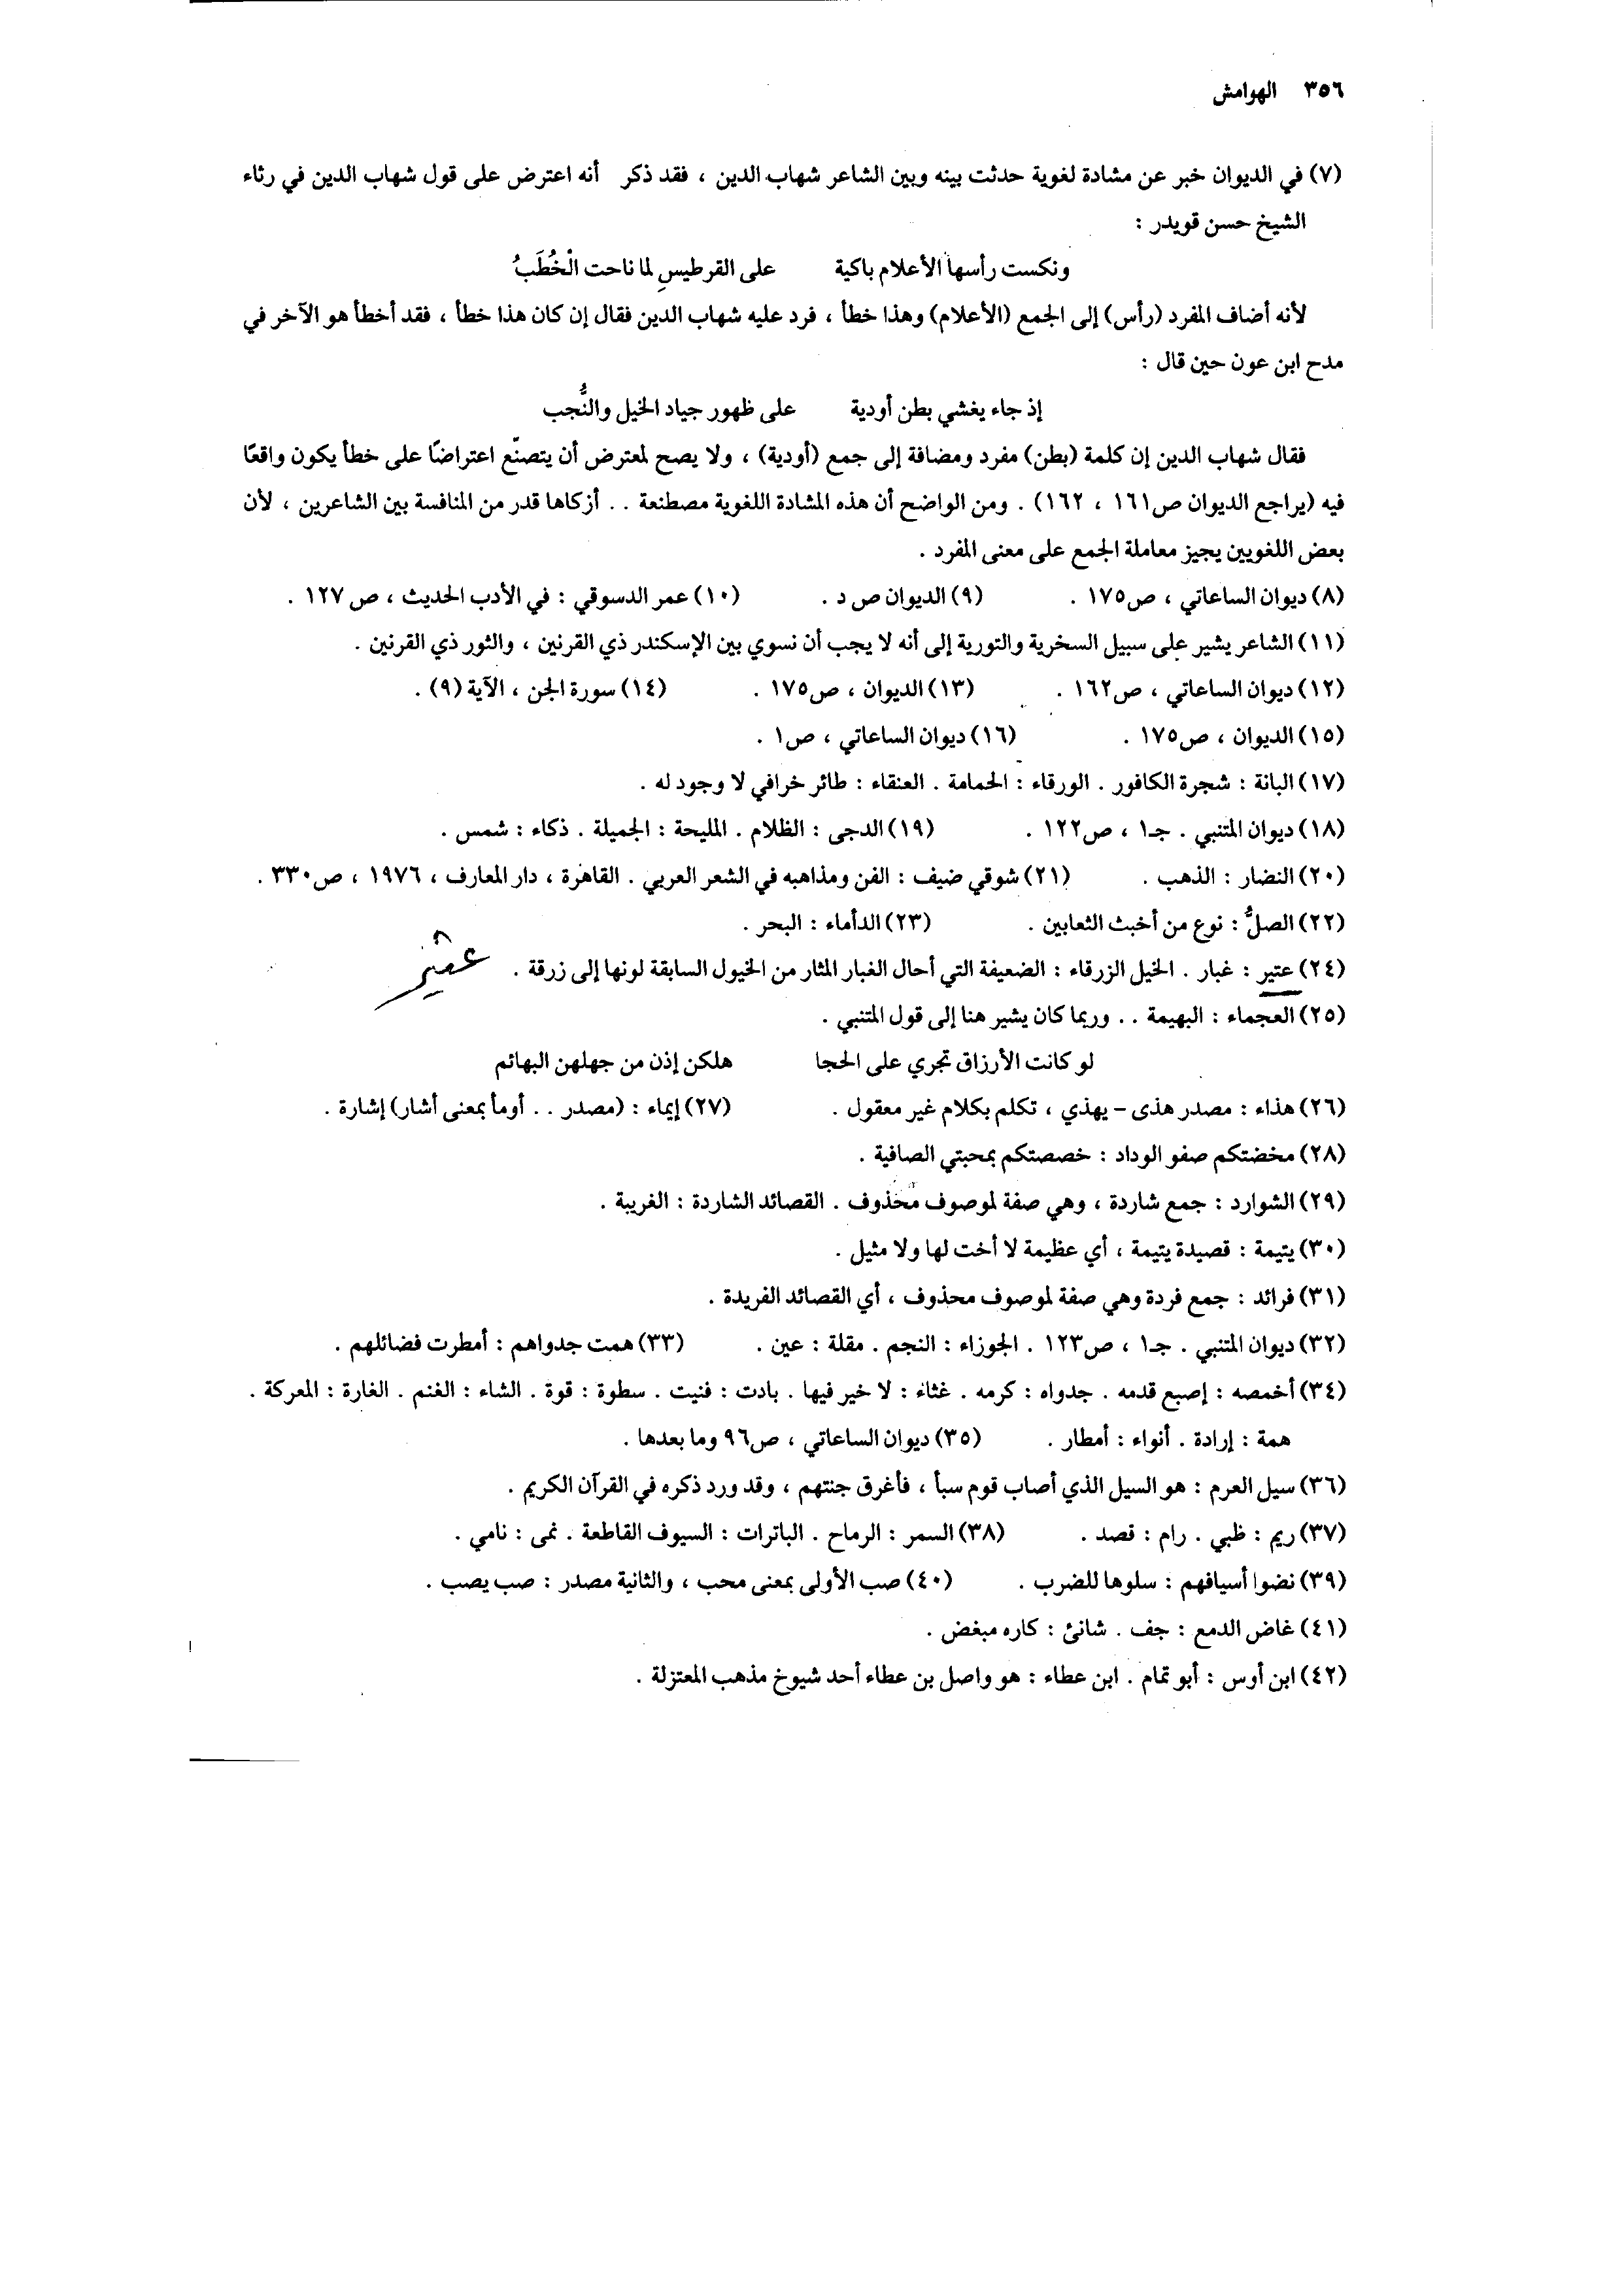 ٣٥٦ الهوامش
(٧) في الديوان خبر عن مشادة لغوية حدثت بينه وبين الشاعر شهاب الدين ، فقد ذكر أنه اعترض على قول شهاب الدين في رثاء
الشيخ حسن قويدر :
ونكست رأسها الأعلام باكية على القرطيسِ لما ناحت الْخُطَبُ
لأنه أضاف المفرد (رأس) إلى الجمع (الأعلام) وهذا خطأ ، فرد عليه شهاب الدين فقال إن كان هذا خطأ ، فقد أخطأ هو الآخر في
مدح ابن عون حين قال :
إذ جاء يغشي بطن أودية على ظهور جياد الخيل والنُّجب
فقال شهاب الدين إن كلمة (بطن) مفرد ومضافة إلى جمع (أودية) ، ولا يصح لمعترض أن يتصنّع اعتراضًا على خطأ يكون واقعًا
فيه (يراجع الديوان ص١٦١ ، ١٦٢) . ومن الواضح أن هذه المشادة اللغوية مصطنعة . . أزكاها قدر من المنافسة بين الشاعرين ، لأن
بعض اللغويين يجيز معاملة الجمع على معنى المفرد .
(٨) ديوان الساعاتي ، ص١٧٥ . (٩) الديوان ص د . (١٠) عمر الدسوقي : في الأدب الحديث ، ص١٢٧ .
(١١) الشاعر يشير على سبيل السخرية والتورية إلى أنه لا يجب أن نسوي بين الإسكندر ذي القرنين ، والثور ذي القرنين .
(١٢) ديوان الساعاتي ، ص١٦٢ . (١٣) الديوان ، ص١٧٥ . (١٤) سورة الجن ، الآية (٩) .
(١٥) الديوان ، ص١٧٥ . (١٦) ديوان الساعاتي ، ص١ .
(١٧) البانة : شجرة الكافور . الورقاء : الحمامة . العنقاء : طائر خرافي لا وجود له .
(١٨) ديوان المتنبي . جـ١ ، ص١٢٢ . (١٩) الدجى : الظلام . المليحة : الجميلة . ذكاء : شمس .
(٢٠) النضار : الذهب . (٢١) شوقي ضيف : الفن ومذاهبه في الشعر العربي . القاهرة ، دار المعارف ، ١٩٧٦ ، ص٣٣٠ .
(٢٢) الصلُّ : نوع من أخبث الثعابين . (٢٣) الدأماء : البحر .
(٢٤) عتير : غبار . الخيل الزرقاء : الضعيفة التي أحال الغبار المثار من الخيول السابقة لونها إلى زرقة .
(٢٥) العجماء : البهيمة . . وربما كان يشير هنا إلى قول المتنبي .
لو كانت الأرزاق تجري على الحجا هلكن إذن من جهلهن البهائم
(٢٦) هذاء : مصدر هذى – يهذي ، تكلم بكلام غير معقول . (٢٧) إيماء : (مصدر . . أومأ بمعنى أشار) إشارة .
(٢٨) مخضتكم صفو الوداد : خصصتكم بمحبتي الصافية .
(٢٩) الشوارد : جمع شاردة ، وهي صفة لموصوف محذوف . القصائد الشاردة : الغريبة .
(٣٠) يتيمة : قصيدة يتيمة ، أي عظيمة لا أخت لها ولا مثيل .
(٣١) فرائد : جمع فردة وهي صفة لموصوف محذوف ، أي القصائد الفريدة .
(٣٢) ديوان المتنبي . جـ١ ، ص١٢٣ . الجوزاء : النجم . مقلة : عين . (٣٣) همت جدواهم : أمطرت فضائلهم .
(٣٤) أخمصه : إصبع قدمه . جدواه : كرمه . غثاء : لا خير فيها . بادت : فنيت . سطوة : قوة . الشاء : الغنم . الغارة : المعركة .
همة : إرادة . أنواء : أمطار . (٣٥) ديوان الساعاتي ، ص٩٦ وما بعدها .
(٣٦) سيل العرم : هو السيل الذي أصاب قوم سبأ ، فأغرق جنتهم ، وقد ورد ذكره في القرآن الكريم .
(٣٧) ريم : ظبي . رام : قصد . (٣٨) السمر : الرماح . الباترات : السيوف القاطعة . نمى : نامي .
(٣٩) نضوا أسيافهم : سلوها للضرب . (٤٠) صب الأولى بمعنى محب ، والثانية مصدر : صب يصب .
(٤١) غاض الدمع : جف . شانئ : كاره مبغض .
(٤٢) ابن أوس : أبو تمام . ابن عطاء : هو واصل بن عطاء أحد شيوخ مذهب المعتزلة .